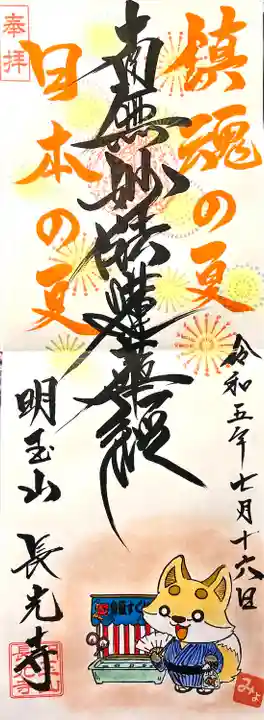 鎮魂の夏
南無妙法蓮華経
日本の夏
奉拝
令和五年七月十六日
明玉山 長光寺
みよ